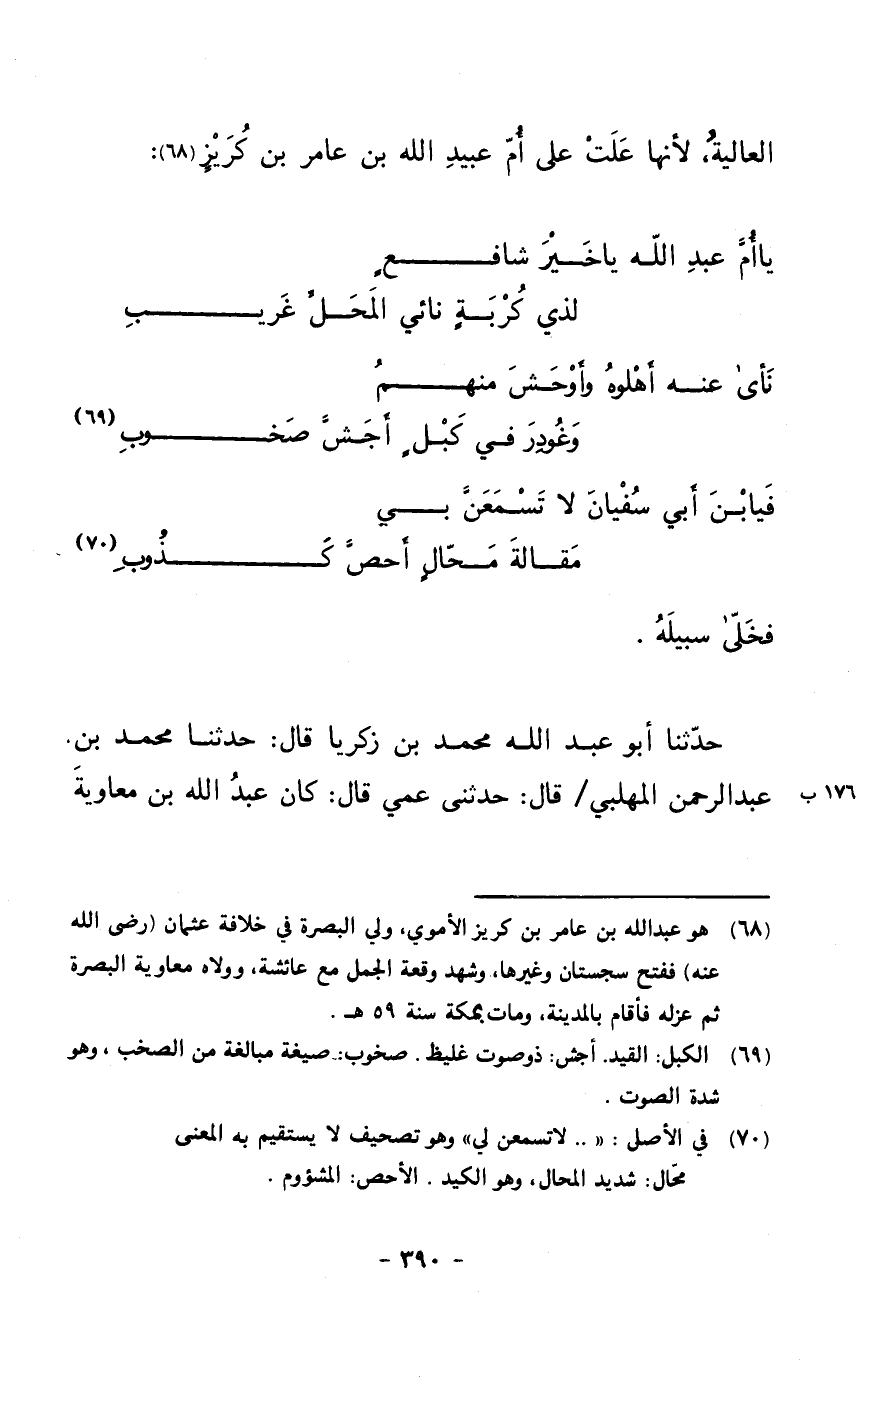 العاليةُ، لأنها عَلَتْ على أُمّ عبيدِ الله بن عامر بن كُرَيْزٍ(٦٨):
ياأُمَّ عبدِ اللّـه ياخَـيْرَ شافـــــــعٍ
لذي كُرْبَـةٍ نائي المَحَـلِّ غَريـــــــبِ
نَأىٰ عنـه أَهْلوهُ وأَوْحَـشَ منهـــــمُ
وَغُودِرَ فـي كَبْـلٍ أَجَـشَّ صَخـــــــوبِ(٦٩)
فَيابْـنَ أَبي سُفْيانَ لا تَسْـمَعَنَّ بـــــي
مَقـالةَ مَـحّالٍ أَحصَّ كَـــــــذُوبِ(٧٠)
فخَلّىٰ سبيلَهُ .
حدّثنا أبو عبـد اللـه محمـد بن زكريا قال: حدثنـا محمـد بن
عبدالرحمن المهلبي/ قال: حدثنى عمي قال: كان عبدُ الله بن معاويةَ ١٧٦ ب
(٦٨) هو عبدالله بن عامر بن كريز الأموي، ولي البصرة في خلافة عثمان (رضى الله
عنه) ففتح سجستان وغيرها، وشهد وقعة الجمل مع عائشة، وولاه معاوية البصرة
ثم عزله فأقام بالمدينة، ومات بمكة سنة ٥٩ هـ .
(٦٩) الكبل: القيد. أجش: ذوصوت غليظ . صخوب: صيغة مبالغة من الصخب ، وهو
شدة الصوت .
(٧٠) في الأصل : « .. لاتسمعن لي» وهو تصحيف لا يستقيم به المعنى
محّال: شديد المحال، وهو الكيد . الأحص: المشؤوم .
- ٣٩٠ -